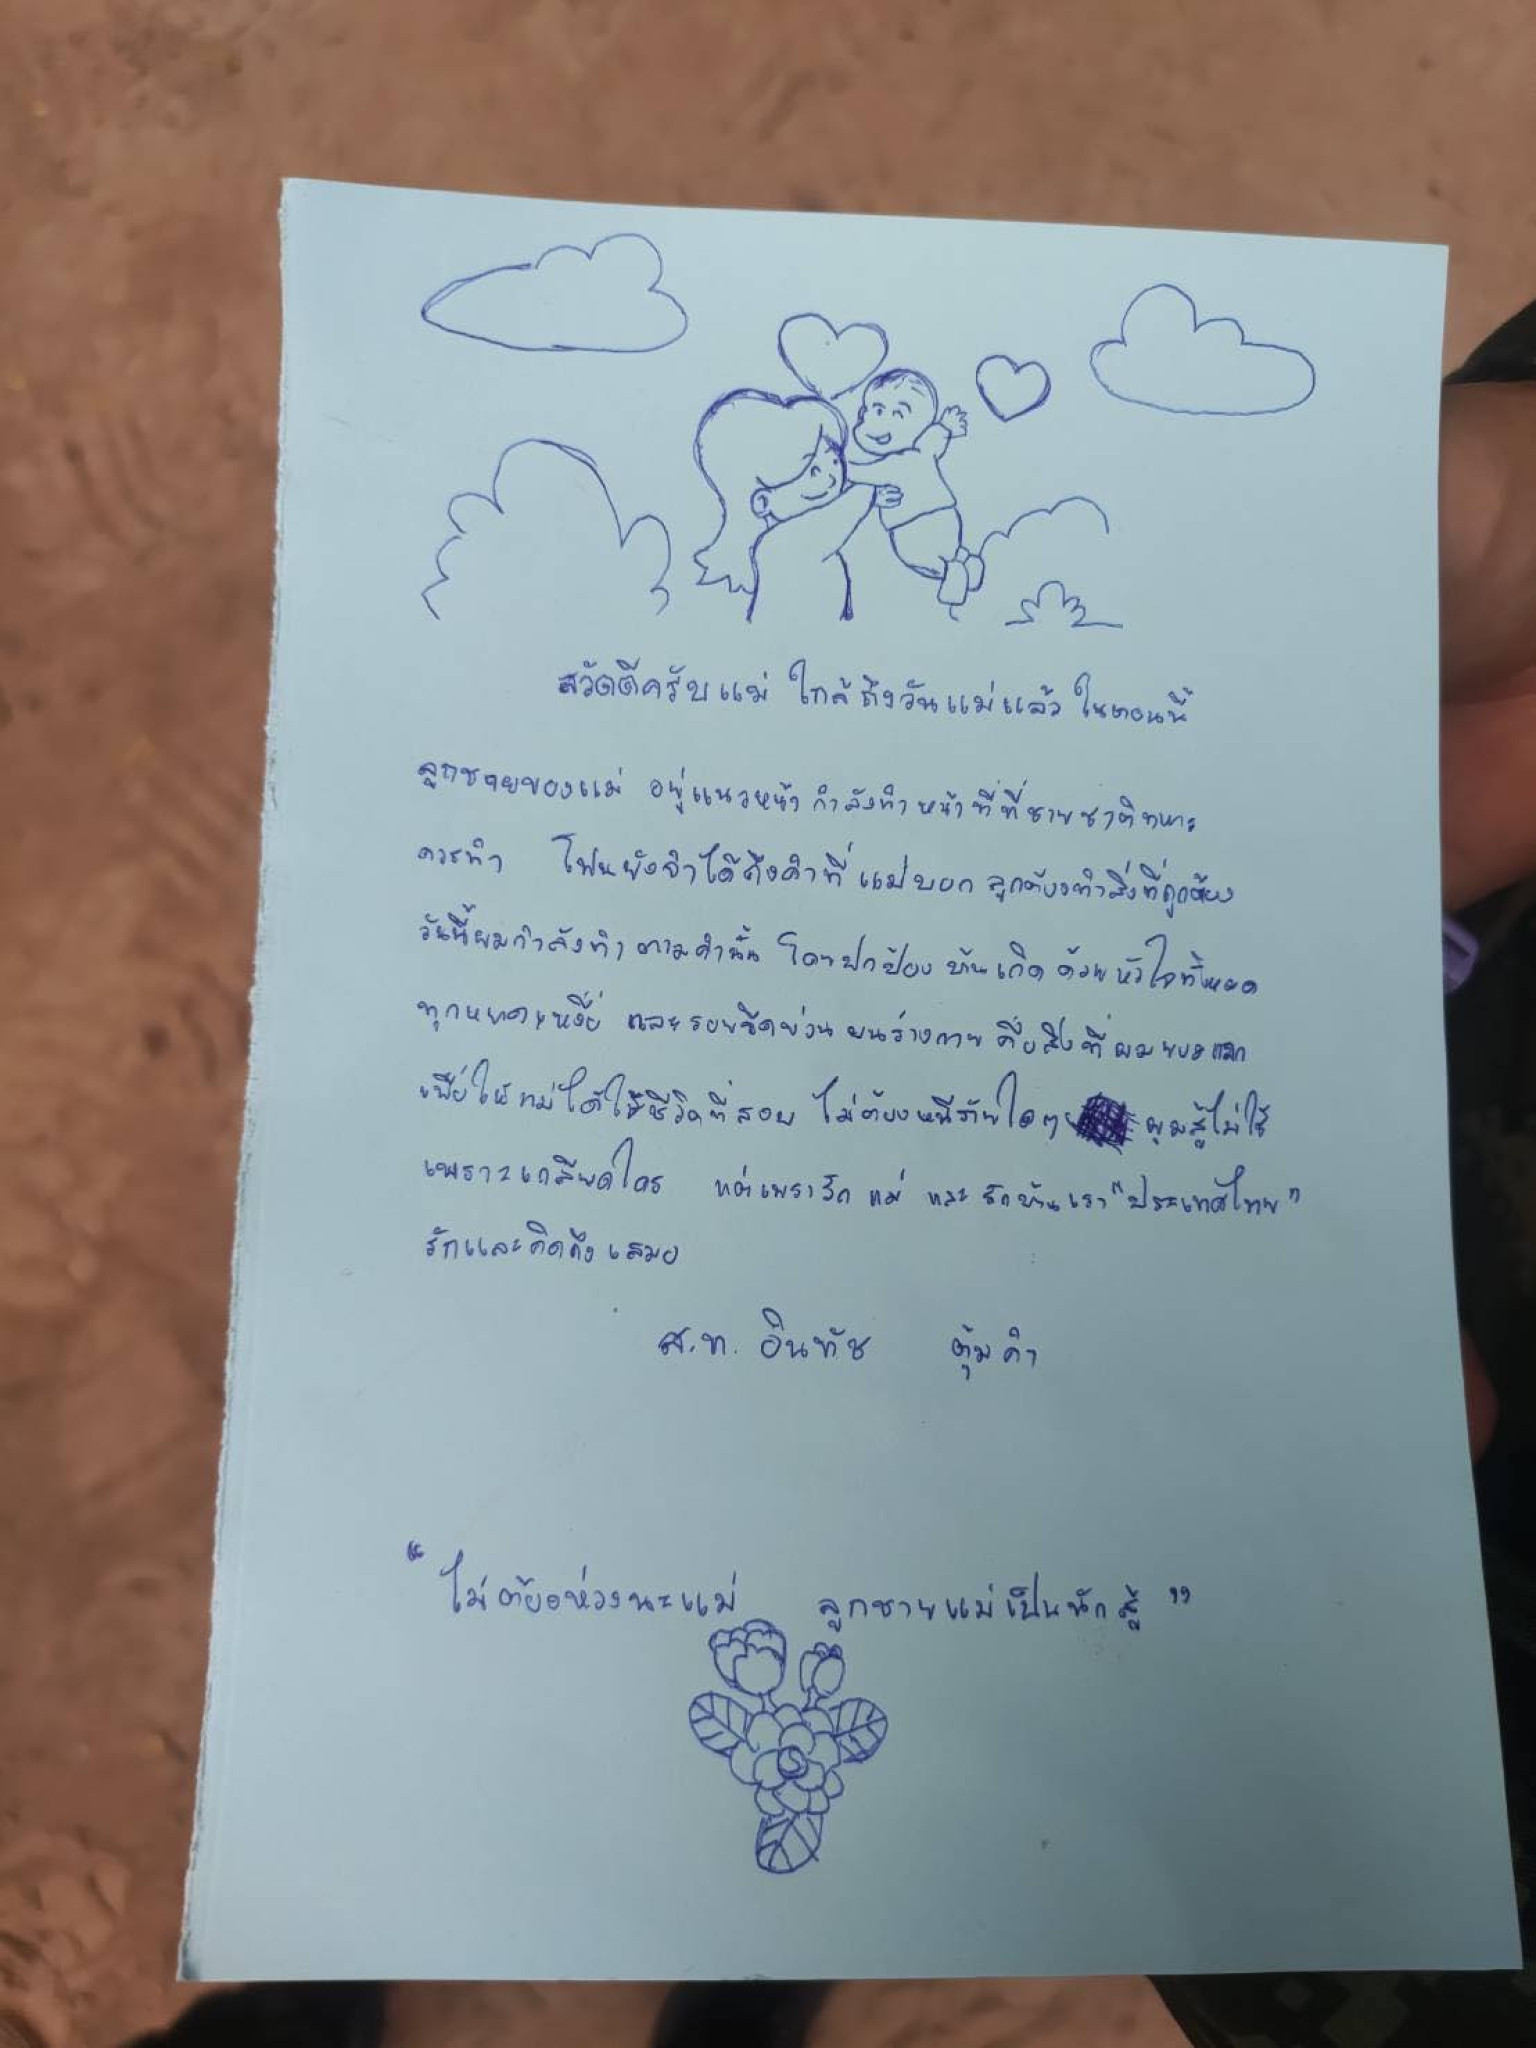 สวัดดีครับแม่ ใกล้ถึงวันแม่แล้ว ในตอนนี้
ลูกชายของแม่ อยู่แนวหน้า กำลังทำหน้าที่ที่ชายชาติทหาร
ควรทำ โฟนยังจำได้ถึงคำที่ แม่บอก ลูกต้องทำสิ่งที่ถูกต้อง
วันนี้ผมกำลังทำ ตามคำนั้น โดยปกป้อง บ้านเกิด ด้วยหัวใจทั้งหมด
ทุกหยาดเหงื่อ และรอยขีดข่วน บนร่างกาย คือสิ่งที่ ผมยอมแลก
เพื่อให้แม่ได้ใช้ชีวิตที่สงบ ไม่ต้องหนีภัยใดๆ ผมสู้ไม่ใช้
เพราะเกลียดใคร แต่เพราะรัก แม่ และ รักบ้านเรา "ประเทศไทย"
รักและคิดถึงเสมอ
ส.ท. อินทัช ตุ้มคำ
"ไม่ต้องห่วงนะแม่ ลูกชายแม่เป็นนักสู้"